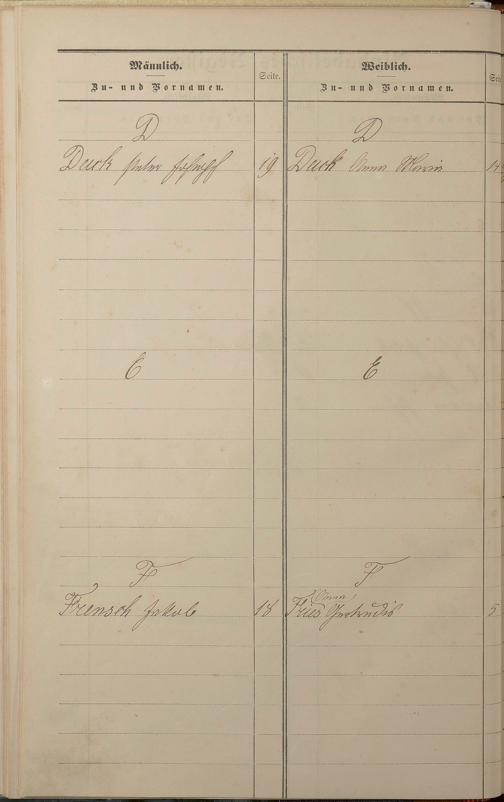 Männlich.
Zu- und Vornamen.
Seite.
Weiblich.
Zu- und Vornamen.
D
D
Duck Peter Joseph 19
Duck Anna Maria 14
E
E
F
F
Frensch Jakob 18
(Anna)
Fries Gertrudis 5